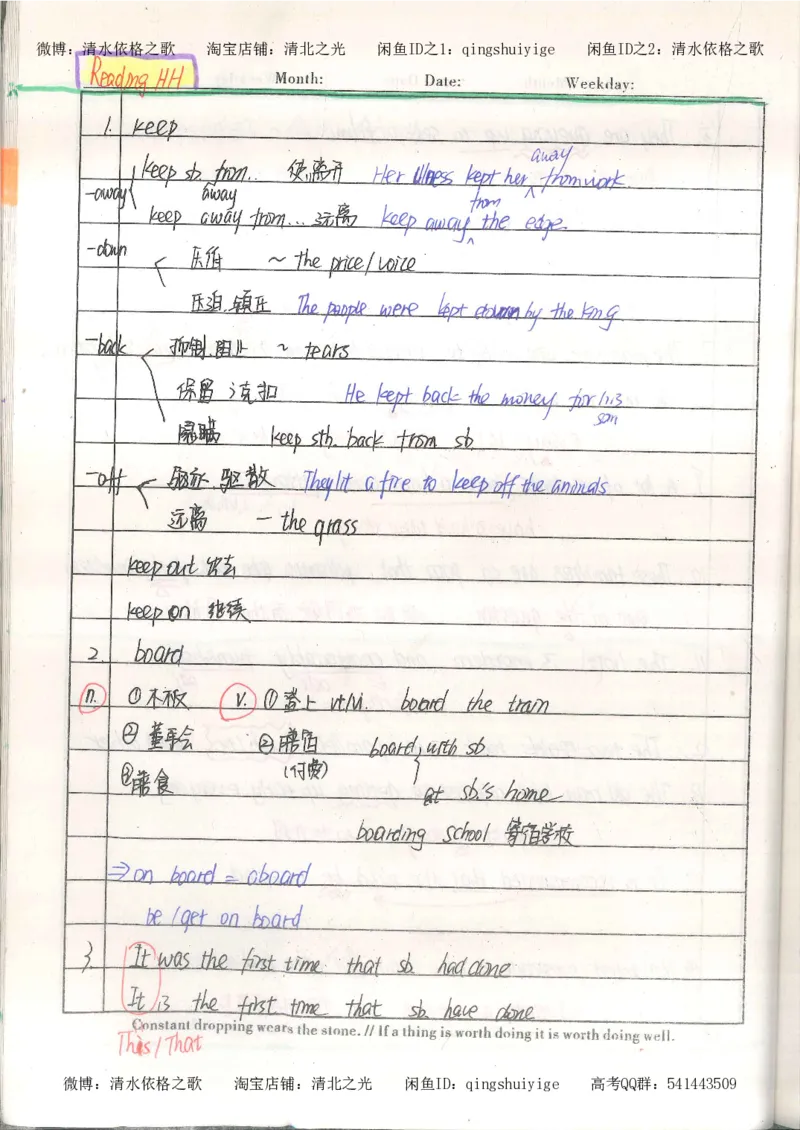 微博：清水依格之歌 淘宝店铺：清北之光 闲鱼ID之1：qingshuiyige 闲鱼ID之2：清水依格之歌
Reading HH
Month: Date: Weekday:
1. keep
away
keep sb. from... 使离开 Her illness kept her from work.
-away away from
keep away from... 远离 keep away the edge.
-down 压低 ~ the price/voice
压迫.镇压 The people were kept down by the king
-back 抑制.阻止 ~ tears
保留 克扣 He kept back the money for his
son
隐瞒 keep sth. back from sb.
-off 驱散 They lit a fire to keep off the animals
远离 — the grass
keep out
keep on 继续
2. board
n. ①木板 v. ①登上 vt/vi. board the train
②董事会 ② board with sb.
(付费)
③膳食 at sb.'s home
boarding school 寄宿学校
⇒ on board = aboard
be / get on board
3. It was the first time that sb. had done
It is the first time that sb. have done
Constant dropping wears the stone. // If a thing is worth doing it is worth doing well.
This / That
微博：清水依格之歌 淘宝店铺：清北之光 闲鱼ID：qingshuiyige 高考QQ群：541443509